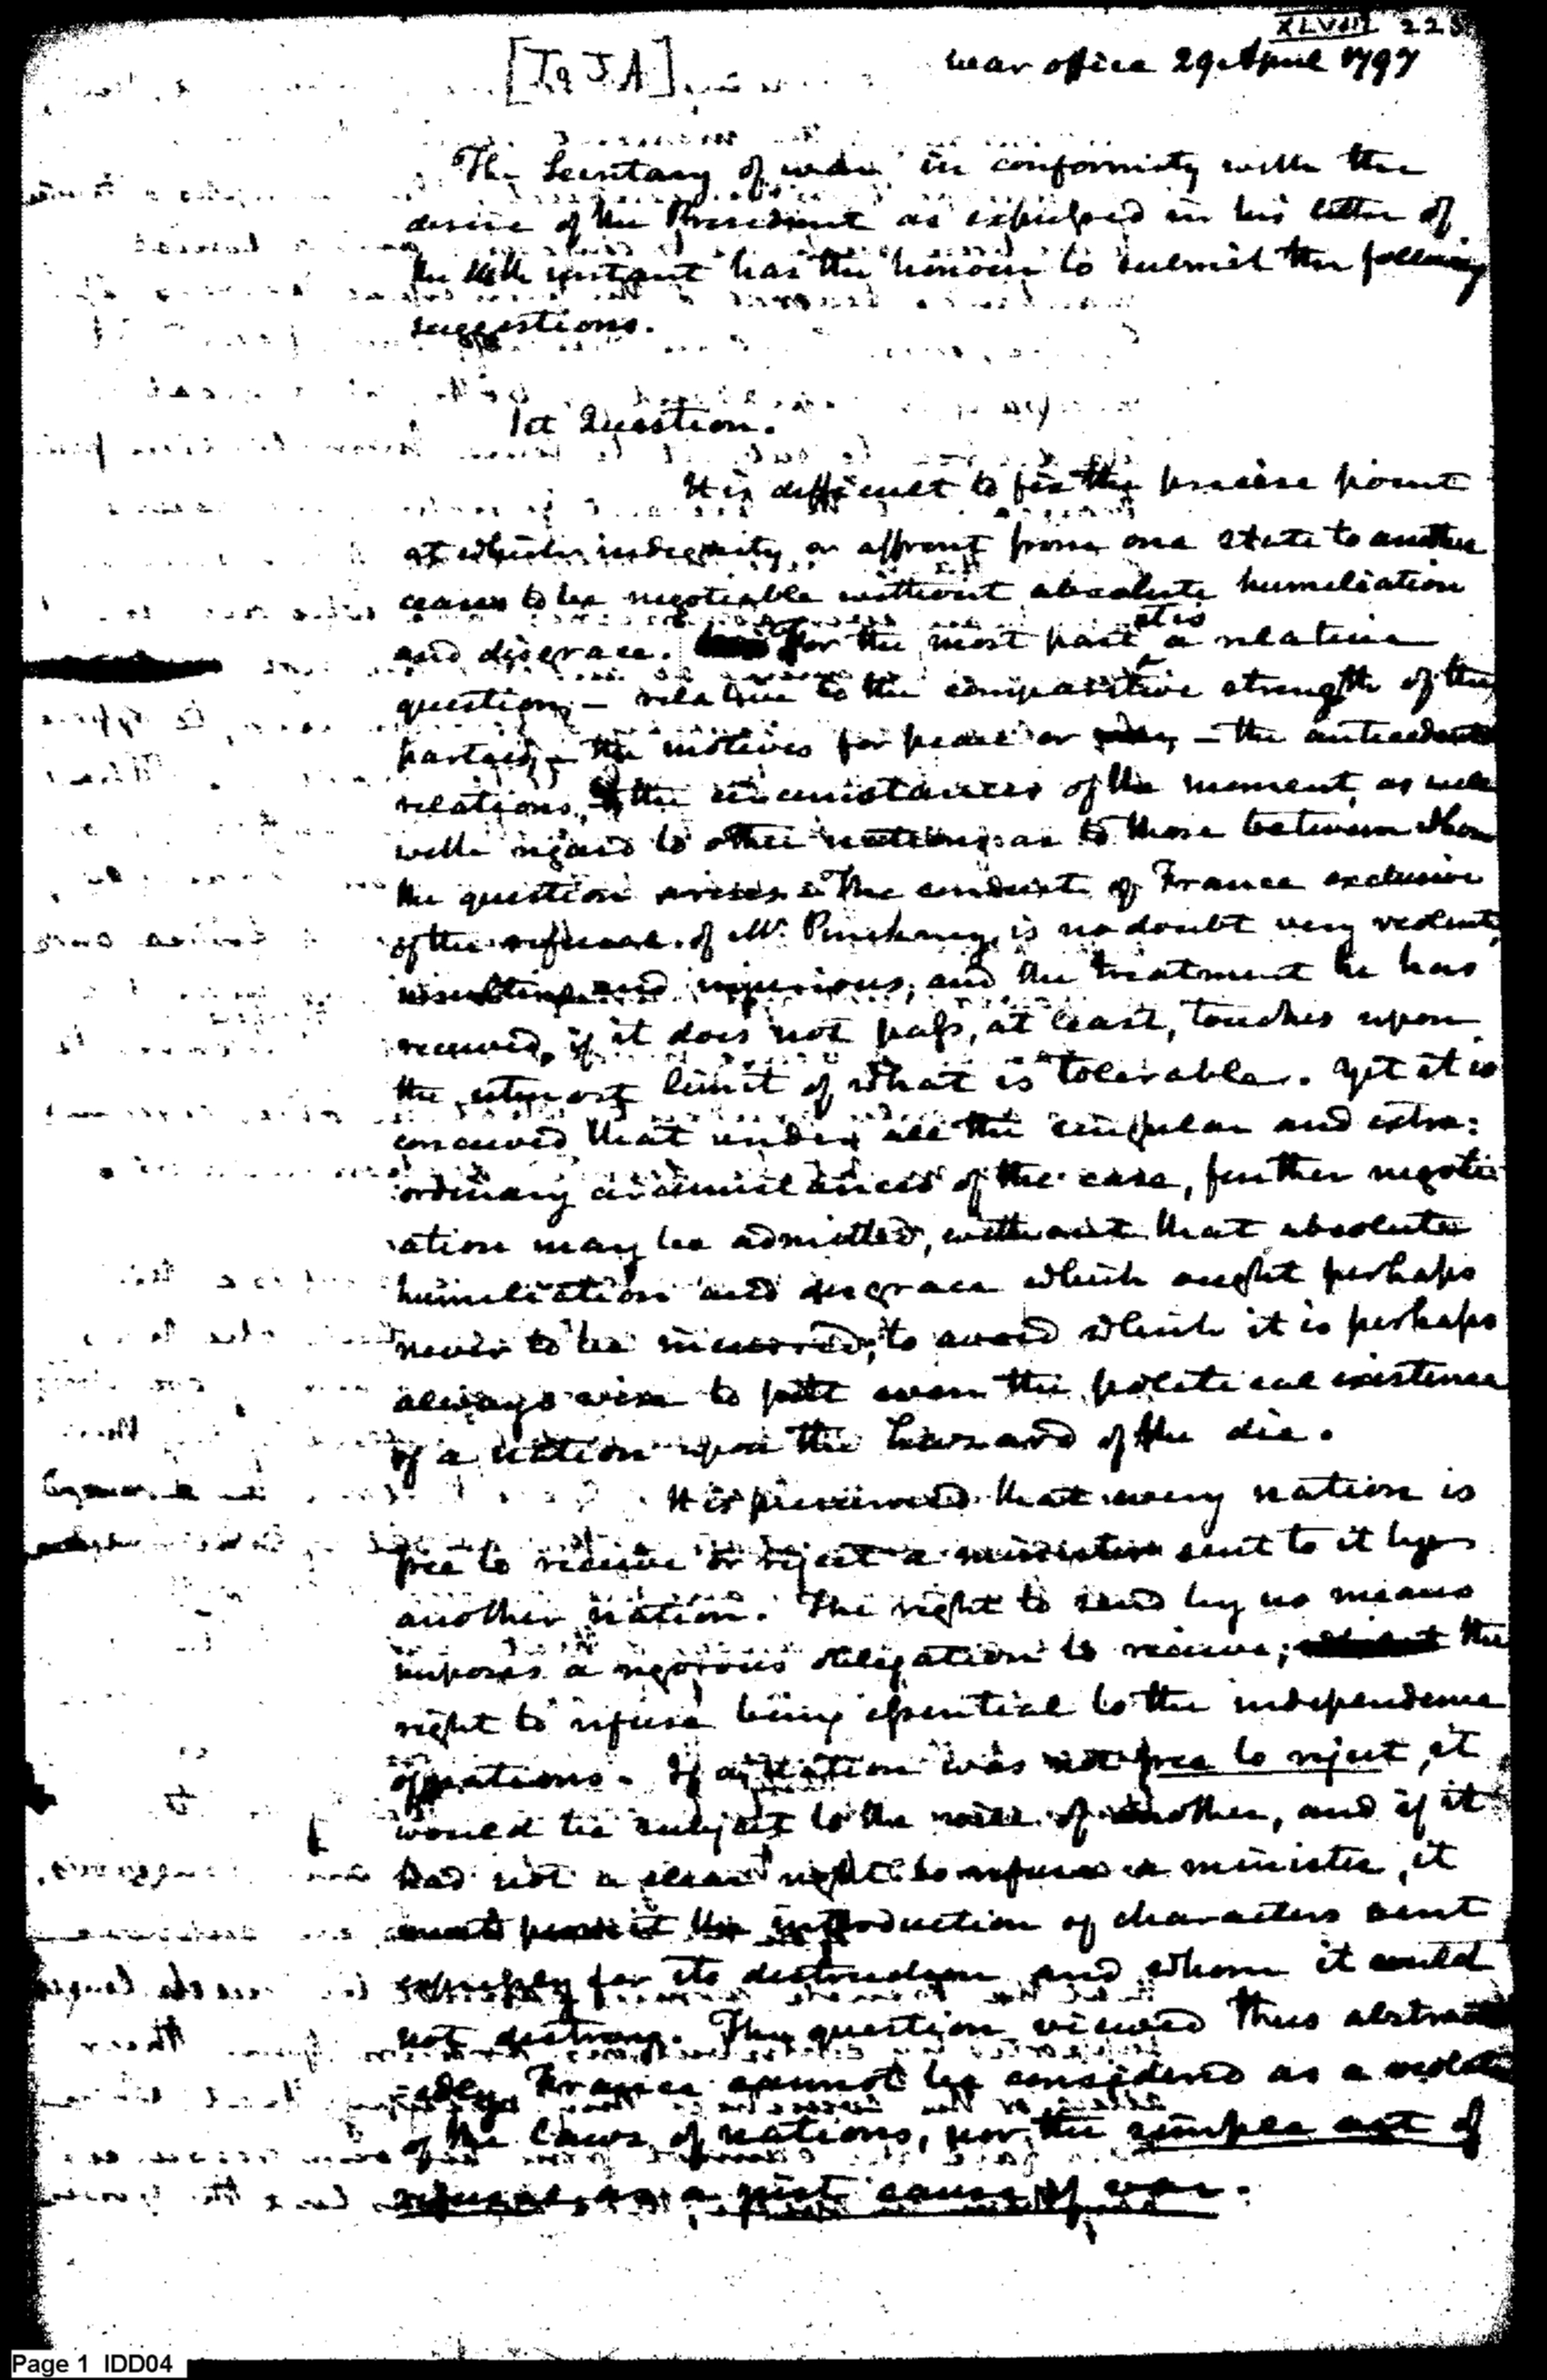 XLVIII 225
[To J A]
War office 29 April 1797
The Secretary of war in conformity with the
desire of the President as expressed in his letter of
the instant has the honour to submit the following
suggestions.
1st Question.
It is difficult to fix the precise point
at which indignity, or affront from one state to another
ceases to be negotiable without absolute humiliation
and disgrace. For the most part it is a relative
question, – relative to the comparative strength of the
parties, – the motives for peace or – the antecedent
relations, the circumstances of the moment, as well
with regard to other nations as to those between whom
the question arises. The conduct of France exclusive
of the refusal of Mr. Pinckney, is no doubt very violent,
insulting and injurious, and the treatment he has
received, if it does not pass, at least, touches upon
the utmost limit of what is tolerable. Yet it is
conceived that under all the singular and extra:
ordinary circumstances of the case, further negoti
ation may be admitted, without that absolute
humiliation and disgrace which ought perhaps
never to be incurred; to avoid which it is perhaps
always wise to putt even the political existence
of a nation upon the hazard of the die.
It is presumed that every nation is
free to receive or reject a minister sent to it by
another nation. The right to send by no means
imposes a rigorous obligation to receive; the
right to refuse being essential to the independence
of nations. If a nation was not free to reject, it
would be subject to the will of another, and if it
had not a clear right to refuse a minister, it
must permit the introduction of characters sent
expressly for its destruction and whom it could
not destroy. The question viewed thus abstract
edly, France cannot be considered as a violator
of the laws of nations, nor the simple act of
refusal, as a just cause of war.
Page 1 IDD04